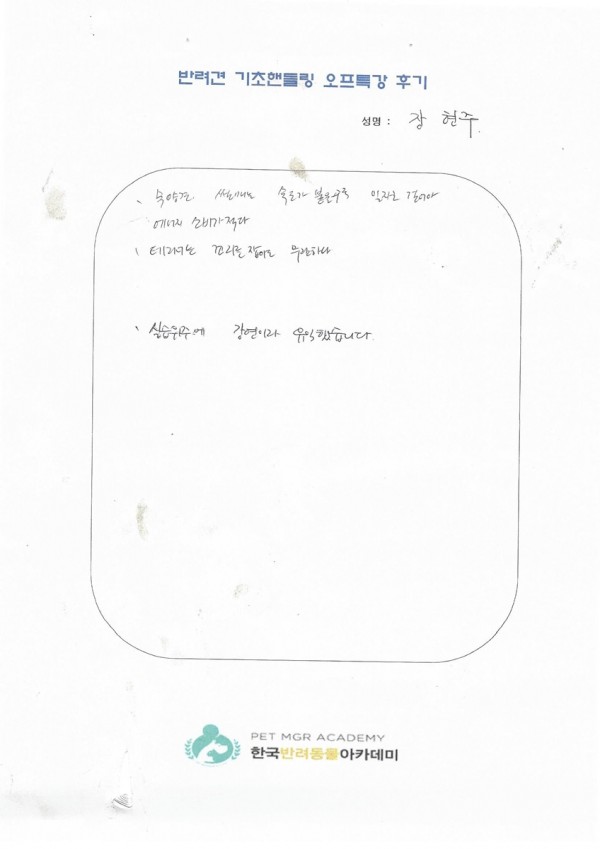 반려견 기초핸들링 오프특강 후기
성명 : 장 현주
속도가 일자로 걸어야
에너지 소비가 적다
테리어는 꼬리를 잡아도 무관하다
실습위주에 강연이라 유익했습니다.
PET MGR ACADEMY
한국반려동물아카데미